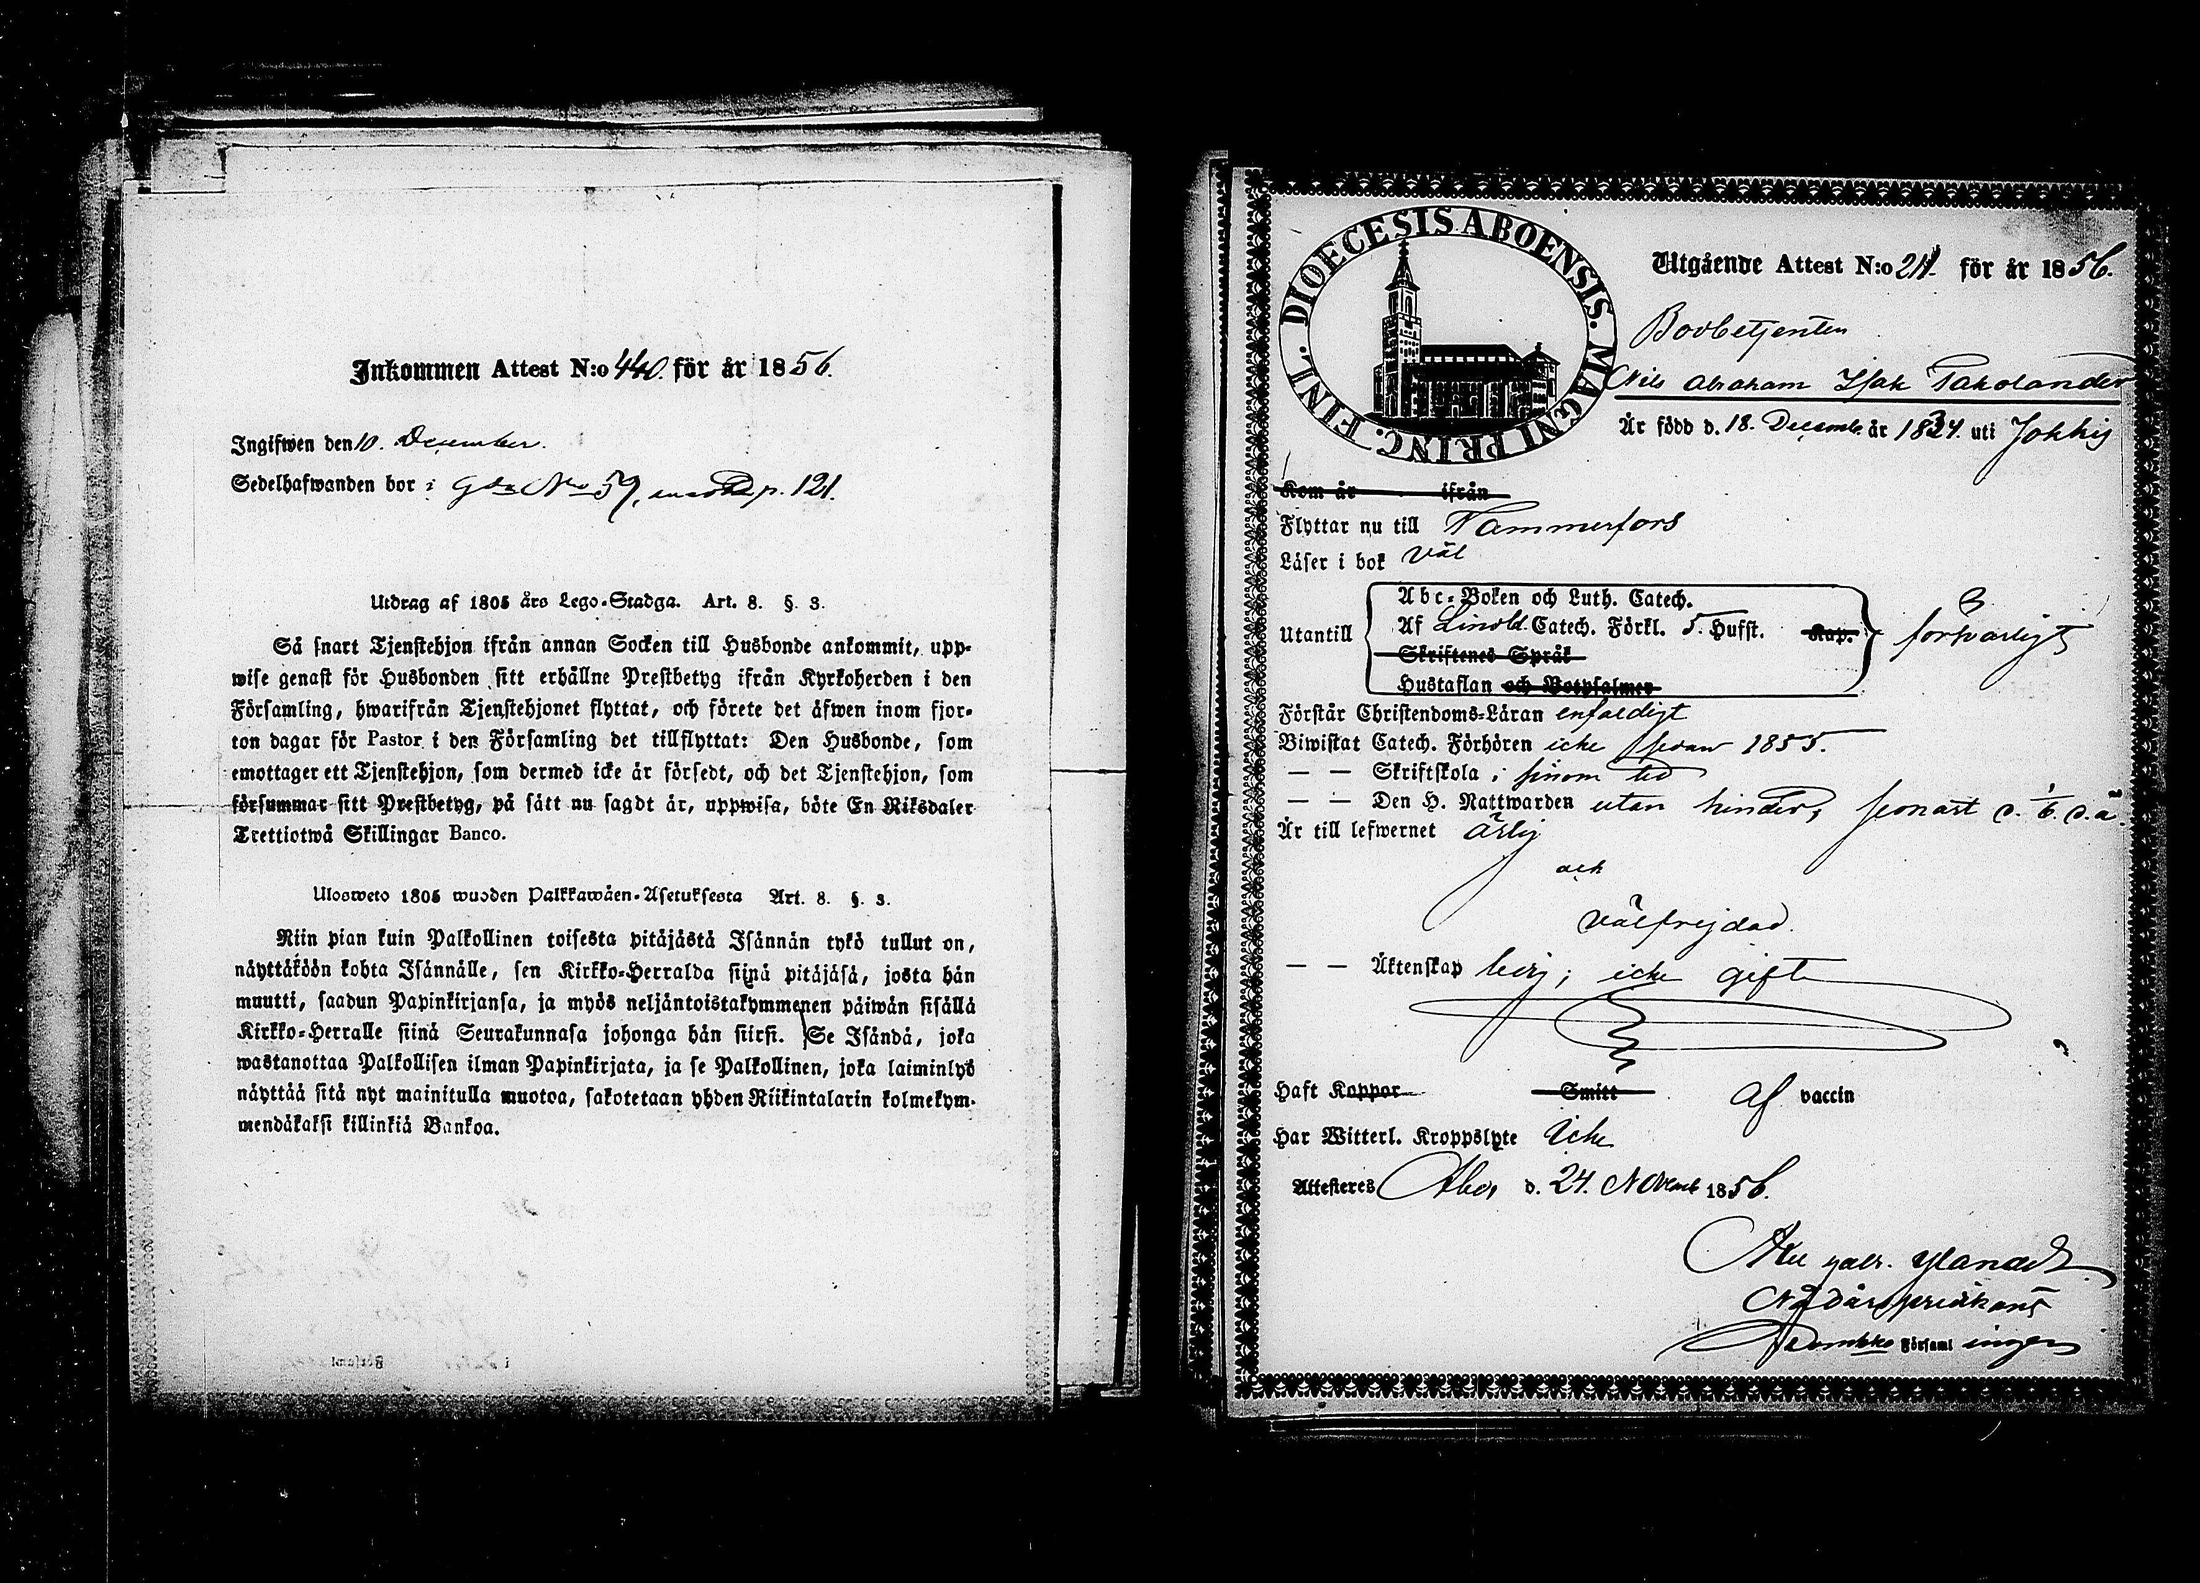 Inkommen Attest N:o 440. för år 1856.
Ingifwen den 10. December.
Sedelhafwanden bor i Gdn No 57, p. 121.
Utdrag af 1805 års Lego-Stadga. Art. 8. §. 3.
Så snart Tjenstehjon ifrån annan Socken till Husbonde ankommit, upp-
wise genast för Husbonden sitt erhållne Prestbetyg ifrån Kyrkoherden i den
Församling, hwarifrån Tjenstehjonet flyttat, och förete det äfwen inom fjor-
ton dagar för Pastor i den Församling det tillflyttat: Den Husbonde, som
emottager ett Tjenstehjon, som dermed icke är försedt, och det Tjenstehjon, som
försummar sitt Prestbetyg, på sätt nu sagdt är, uppwisa, böte En Riksdaler
Trettiotwå Skillingar Banco.
Ulosweto 1805 wuoden Palkkawäen-Asetuksesta Art. 8. §. 3.
Niin pian kuin Palkollinen toisesta pitäjästä Isännän tykö tullut on,
näyttäköön kohta Isännälle, sen Kirkko-Herralda siinä pitäjäsä, josta hän
muutti, saadun Papinkirjansa, ja myös neljäntoistakymmenen päiwän sisällä
Kirkko-Herralle siinä Seurakunnasa johonga hän siirsi. Se Isändä, joka
wastanottaa Palkollisen ilman Papinkirjata, ja se Palkollinen, joka laiminlyö
näyttää sitä nyt mainitulla muotoa, sakotetaan yhden Riikintalarin kolmekym-
mendäkaksi killinkiä Bankoa.
DIOECESIS ABOENSIS. MAGNI PRINC. FINL.
Utgående Attest N:o 211. för år 1856.
Bodbetjenten
Nils Abraham Isak Takolander
Är född d. 18. Decemb. år 1834. uti Jokkis
Kom år ifrån
Flyttar nu till Tammerfors
Läser i bok väl
Abc-Boken och Luth. Catech.
Utantill Af Linold. Catech. Förkl. 5. Hufst. Kap. försvarligt
Skriftenes Språk
Hustaflan och Botpsalmer
Förstår Christendoms-Läran enfaldigt
Biwistat Catech. Förhören icke sedan 1855.
— — Skriftskola i sinom tid
— — Den H. Nattwarden utan hinder, senast d. 1/6. d.å.
Är till lefwernet ärlig
och
välfrejdad.
— — Äktenskap ledig; icke gift
Haft Koppor Smitt af vaccin
Har Witterl. Kroppslyte icke
Attesteras Åbo, d. 24. Novemb 1856.
Ylander
Nådårspredikant
Församlingen